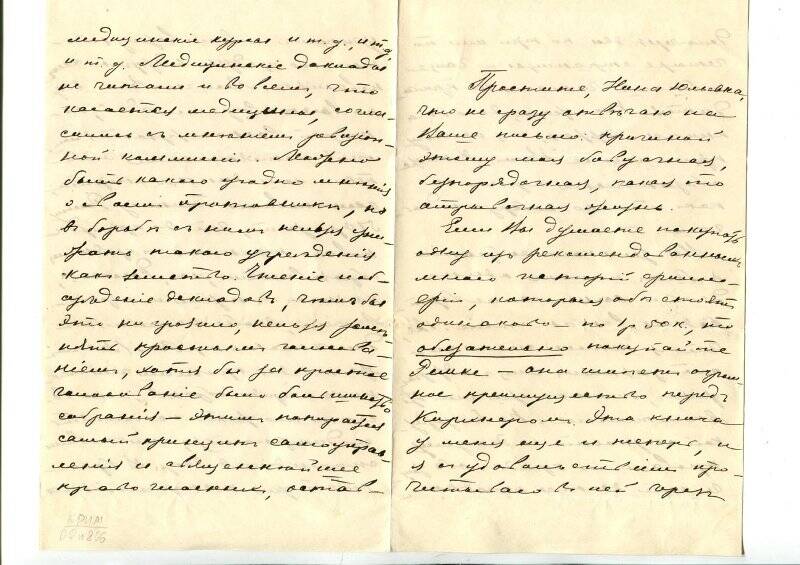 медицинскіе курсы и т.д., и т.д,
и т.д. Медицинскіе доклады
не читали и во всем, что
касается медицины, согла-
сились съ мнѣніемъ ревизіон-
ной коммиссіи. Можно
быть какого угодно мнѣнія
о своем противникѣ, но
в борьбѣ с ним нельзя
жать такого учрежденія
как земство. Чтеніе и об-
сужденіе докладов, чѣм бы
это ни грозило, нельзя замѣ-
нять простым голосова-
ніем, хотя бы за простое
голосованіе было большинство
собранія — этим попирается
самый принцип самоуправ-
ленія и священнѣйшее
право гласных, остав-
КРИМ
Простите, Нина Юльевна,
что не сразу отвѣчаю на
Ваше письмо: причиной
этому моя бавуачная,
безпорядочная, какая то
отрывочная жизнь.
Если Вы думаете покупать
одну из рекомендованных
мною исторій
которыя обѣ стоят
одинаково — по 1р 50к, то
обязательно покупайте
Ремке — она имѣет огром-
ное преимущество перед
Кирхнером. Эта книга
у меня еще и теперь, и
я с удовольствіем про-
читываю в ней через